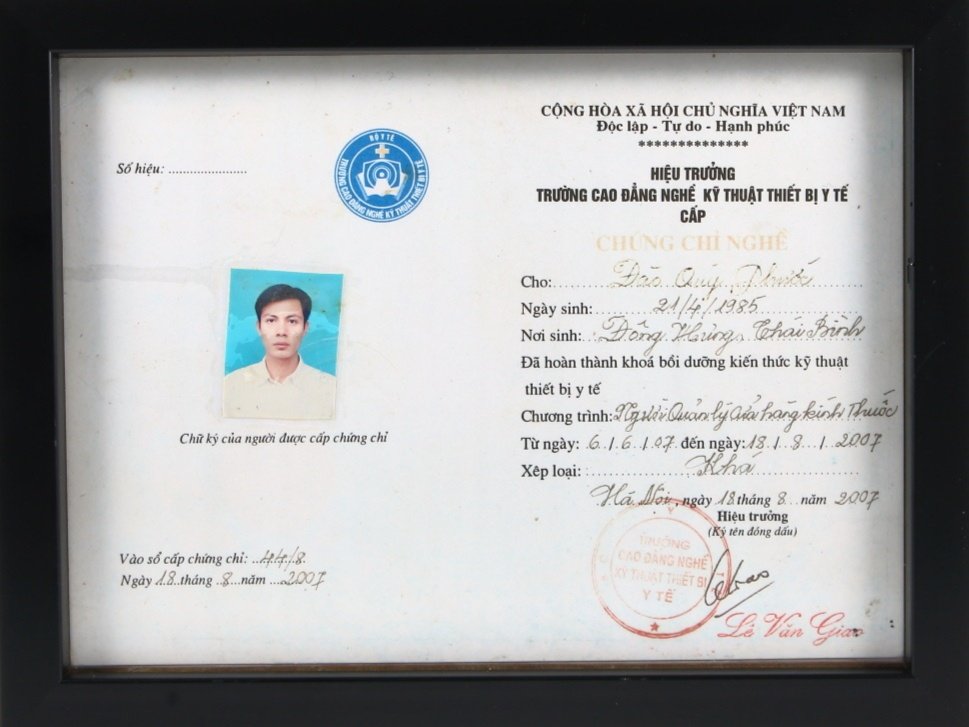 Số hiệu: ........................
BỘ Y TẾ
TRƯỜNG CAO ĐẲNG NGHỀ KỸ THUẬT THIẾT BỊ Y TẾ
Chữ ký của người được cấp chứng chỉ
Vào sổ cấp chứng chỉ: ..44/8.
Ngày 18 tháng ..8...năm ...2007
CỘNG HÒA XÃ HỘI CHỦ NGHĨA VIỆT NAM
Độc lập - Tự do - Hạnh phúc
**************
HIỆU TRƯỞNG
TRƯỜNG CAO ĐẲNG NGHỀ KỸ THUẬT THIẾT BỊ Y TẾ
CẤP
CHỨNG CHỈ NGHỀ
Cho: Đào Quý Phước
Ngày sinh: 21/4/1985
Nơi sinh: Đông Hưng, Thái Bình
Đã hoàn thành khoá bồi dưỡng kiến thức kỹ thuật
thiết bị y tế
Chương trình: Người Quản lý cửa hàng kính Thuốc
Từ ngày: 6/6/07 đến ngày: 18/8/2007
Xếp loại: Khá
Hà Nội, ngày 18 tháng 8 năm 2007
Hiệu trưởng
(Ký tên đóng dấu)
TRƯỜNG
CAO ĐẲNG NGHỀ
KỸ THUẬT THIẾT BỊ
Y TẾ
Lê Văn Giao